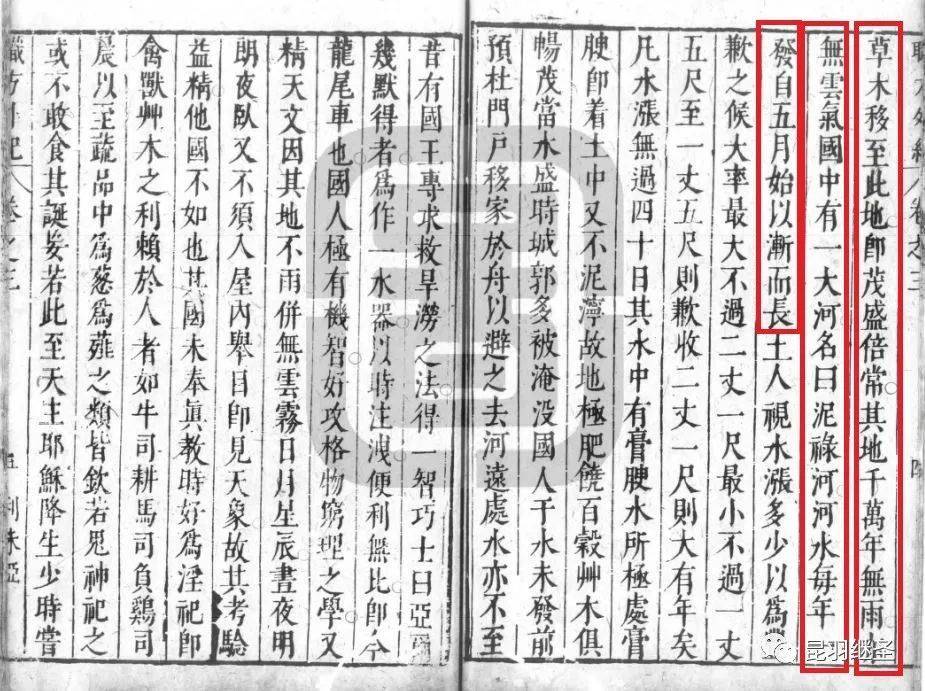 卷之三
草木移至此地卽茂盛倍常其地千萬年無雨
無雲氣國中有一大河名曰泥祿河河水每年
發自五月始以漸而長土人視水漲多少以爲
歉之候大率最大不過二丈一尺最小不過一丈
五尺至一丈五尺則歉收二丈一尺則大有年矣
凡水漲無過四十日其水中有膏腴水所極處膏
腴卽着土中又不泥濘故地極肥饒百穀艸木俱
暢茂當水盛時城郭多被淹沒國人于水未發前
預杜門戶移家於舟以避之去河遠處水亦不至
昔有國王專求救旱澇之法得一智巧士曰亞爾
幾默得者爲作一水器以時注洩便利無比卽今
龍尾車也國人極有機智好攻格物窮理之學又
精天文因其地不雨併無雲霧日月星辰晝夜明
朗夜臥又不須入屋內舉目卽見天象故其考驗
益精他國不如也其國未奉眞教時好爲淫祀卽
禽獸艸木之利賴於人者如牛司耕馬司負鷄司
晨以至蔬品中爲葱爲薤之類皆欽若鬼神祀之
或不敢食其誕妄若此至天主耶穌降生少時嘗
職方外紀 卷之三 利未亞
昆羽继圣